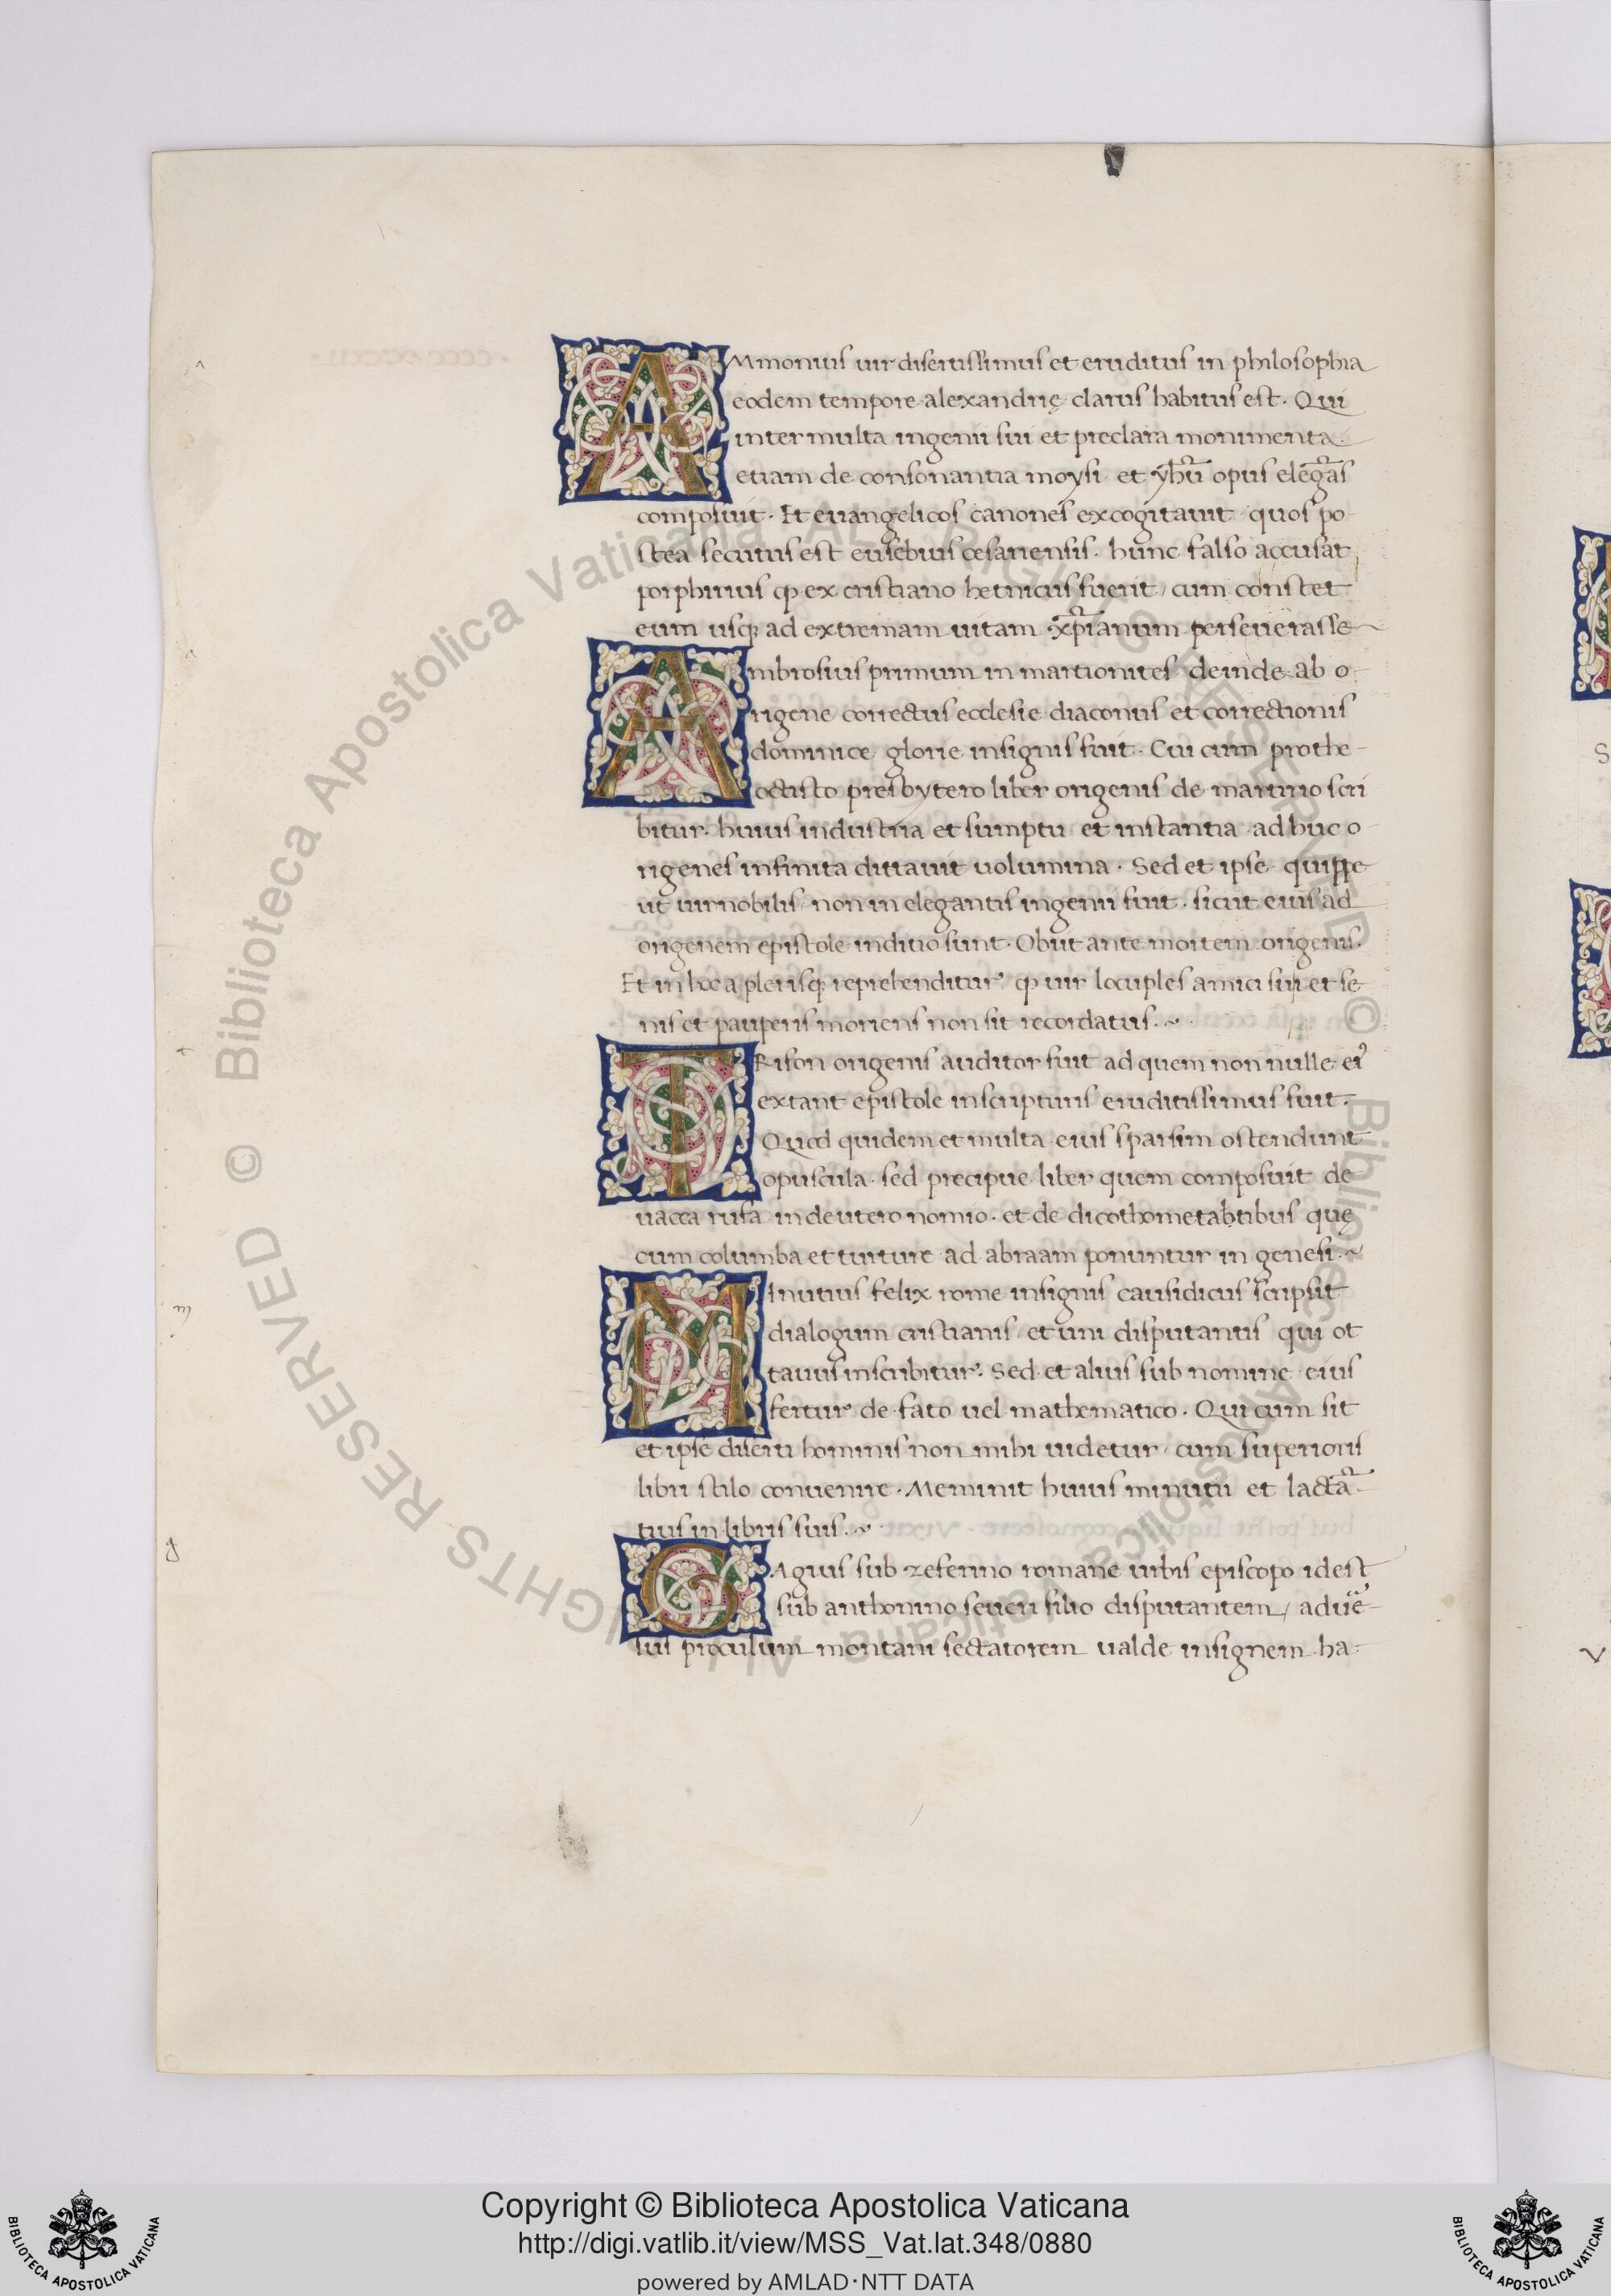 AMmonius uir disertissimus et eruditus in philosophia
eodem tempore alexandrię clarus habitus est. Qui
inter multa ingenii sui et preclara monumenta
etiam de consonantia moysi et yhū opus elegãs
composuit. Et euangelicos canones excogitauit quos po
stea secutus est eusebius cesariensis. hunc falso accusat
porphirius ꝙ ex cristiano hetnicus fuerit / cum constet
eum usqꝫ ad extremam uitam xp̃ianum perseuerasse
Ambrosius primum in martionites deinde ab o-
rigene correctus ecclesie diaconus et correctionis
dominice glorie insignis fuit. Cui cum prothe-
octisto presbytero liber origenis de martirio scri
bitur. huius industria et sumptu et instantia ad huc o
rigenes infinita dittauit uolumina. Sed et ipse quippe
ut uir nobilis / non in elegantis ingenii fuit. sicut eius ad
origenem epistole inditio sunt. Obiit ante mortem origenis.
Et in hoc a plerisqꝫ reprehenditur ꝙ uir locuples amici sui et se
nis et pauperis moriens non sit recordatus.~
TRifon origenis auditor fuit ad quem non nulle ei'
extant epistole inscripturis eruditissimus fuit.
Quod quidem et multa eius sparsim ostendunt
opuscula. sed precipue liber quem composuit de
uacca rufa in deutero nomio. et de dicothometabtibus que
cum columba et turture ad abraam ponuntur in genesi.~
MInutius felix rome insignis causidicus scripsit
dialogum cristianis / et uni disputantis qui ot
tauus inscribitur. Sed et alius sub nomine eius
fertur de fato uel mathematico. Qui cum sit
et ipse diserti hominis non mihi uidetur / cum superioris
libri stilo conuenire. Meminit huius minutii et lactã
tius in libris suis.~
GAgius sub zeferino romane urbis episcopo idest
sub anthonino seueri filio disputantem / aduẽ-
sus proculum montani sectatorem ualde insignem ha-
m
g
© Biblioteca Apostolica Vaticana ALL RIGHTS RESERVED
© Biblioteca Apostolica Vaticana ALL RIGHTS RESERVED
Copyright © Biblioteca Apostolica Vaticana
http://digi.vatlib.it/view/MSS_Vat.lat.348/0880
powered by AMLAD·NTT DATA
BIBLIOTECA APOSTOLICA VATICANA
BIBLIOTECA APOSTOLICA VATICANA